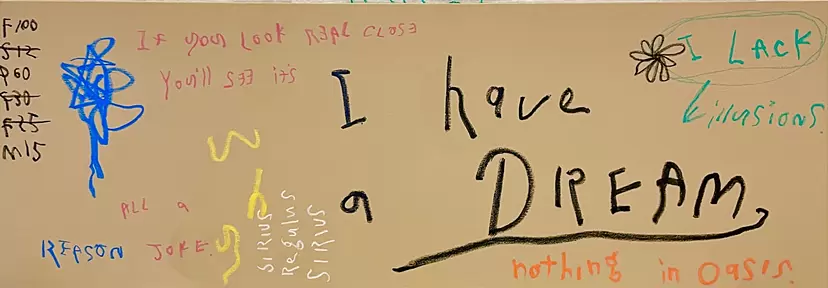 F100
S12
P60
F30
F25
M15
If you LOOK REAL CLOSE
You'll SEE it's
ALL a
REASON JOKE.
SIRIUS
Regulus
SIRIUS
I have
a DREAM,
I LACK
illusions.
nothing in Oasis.